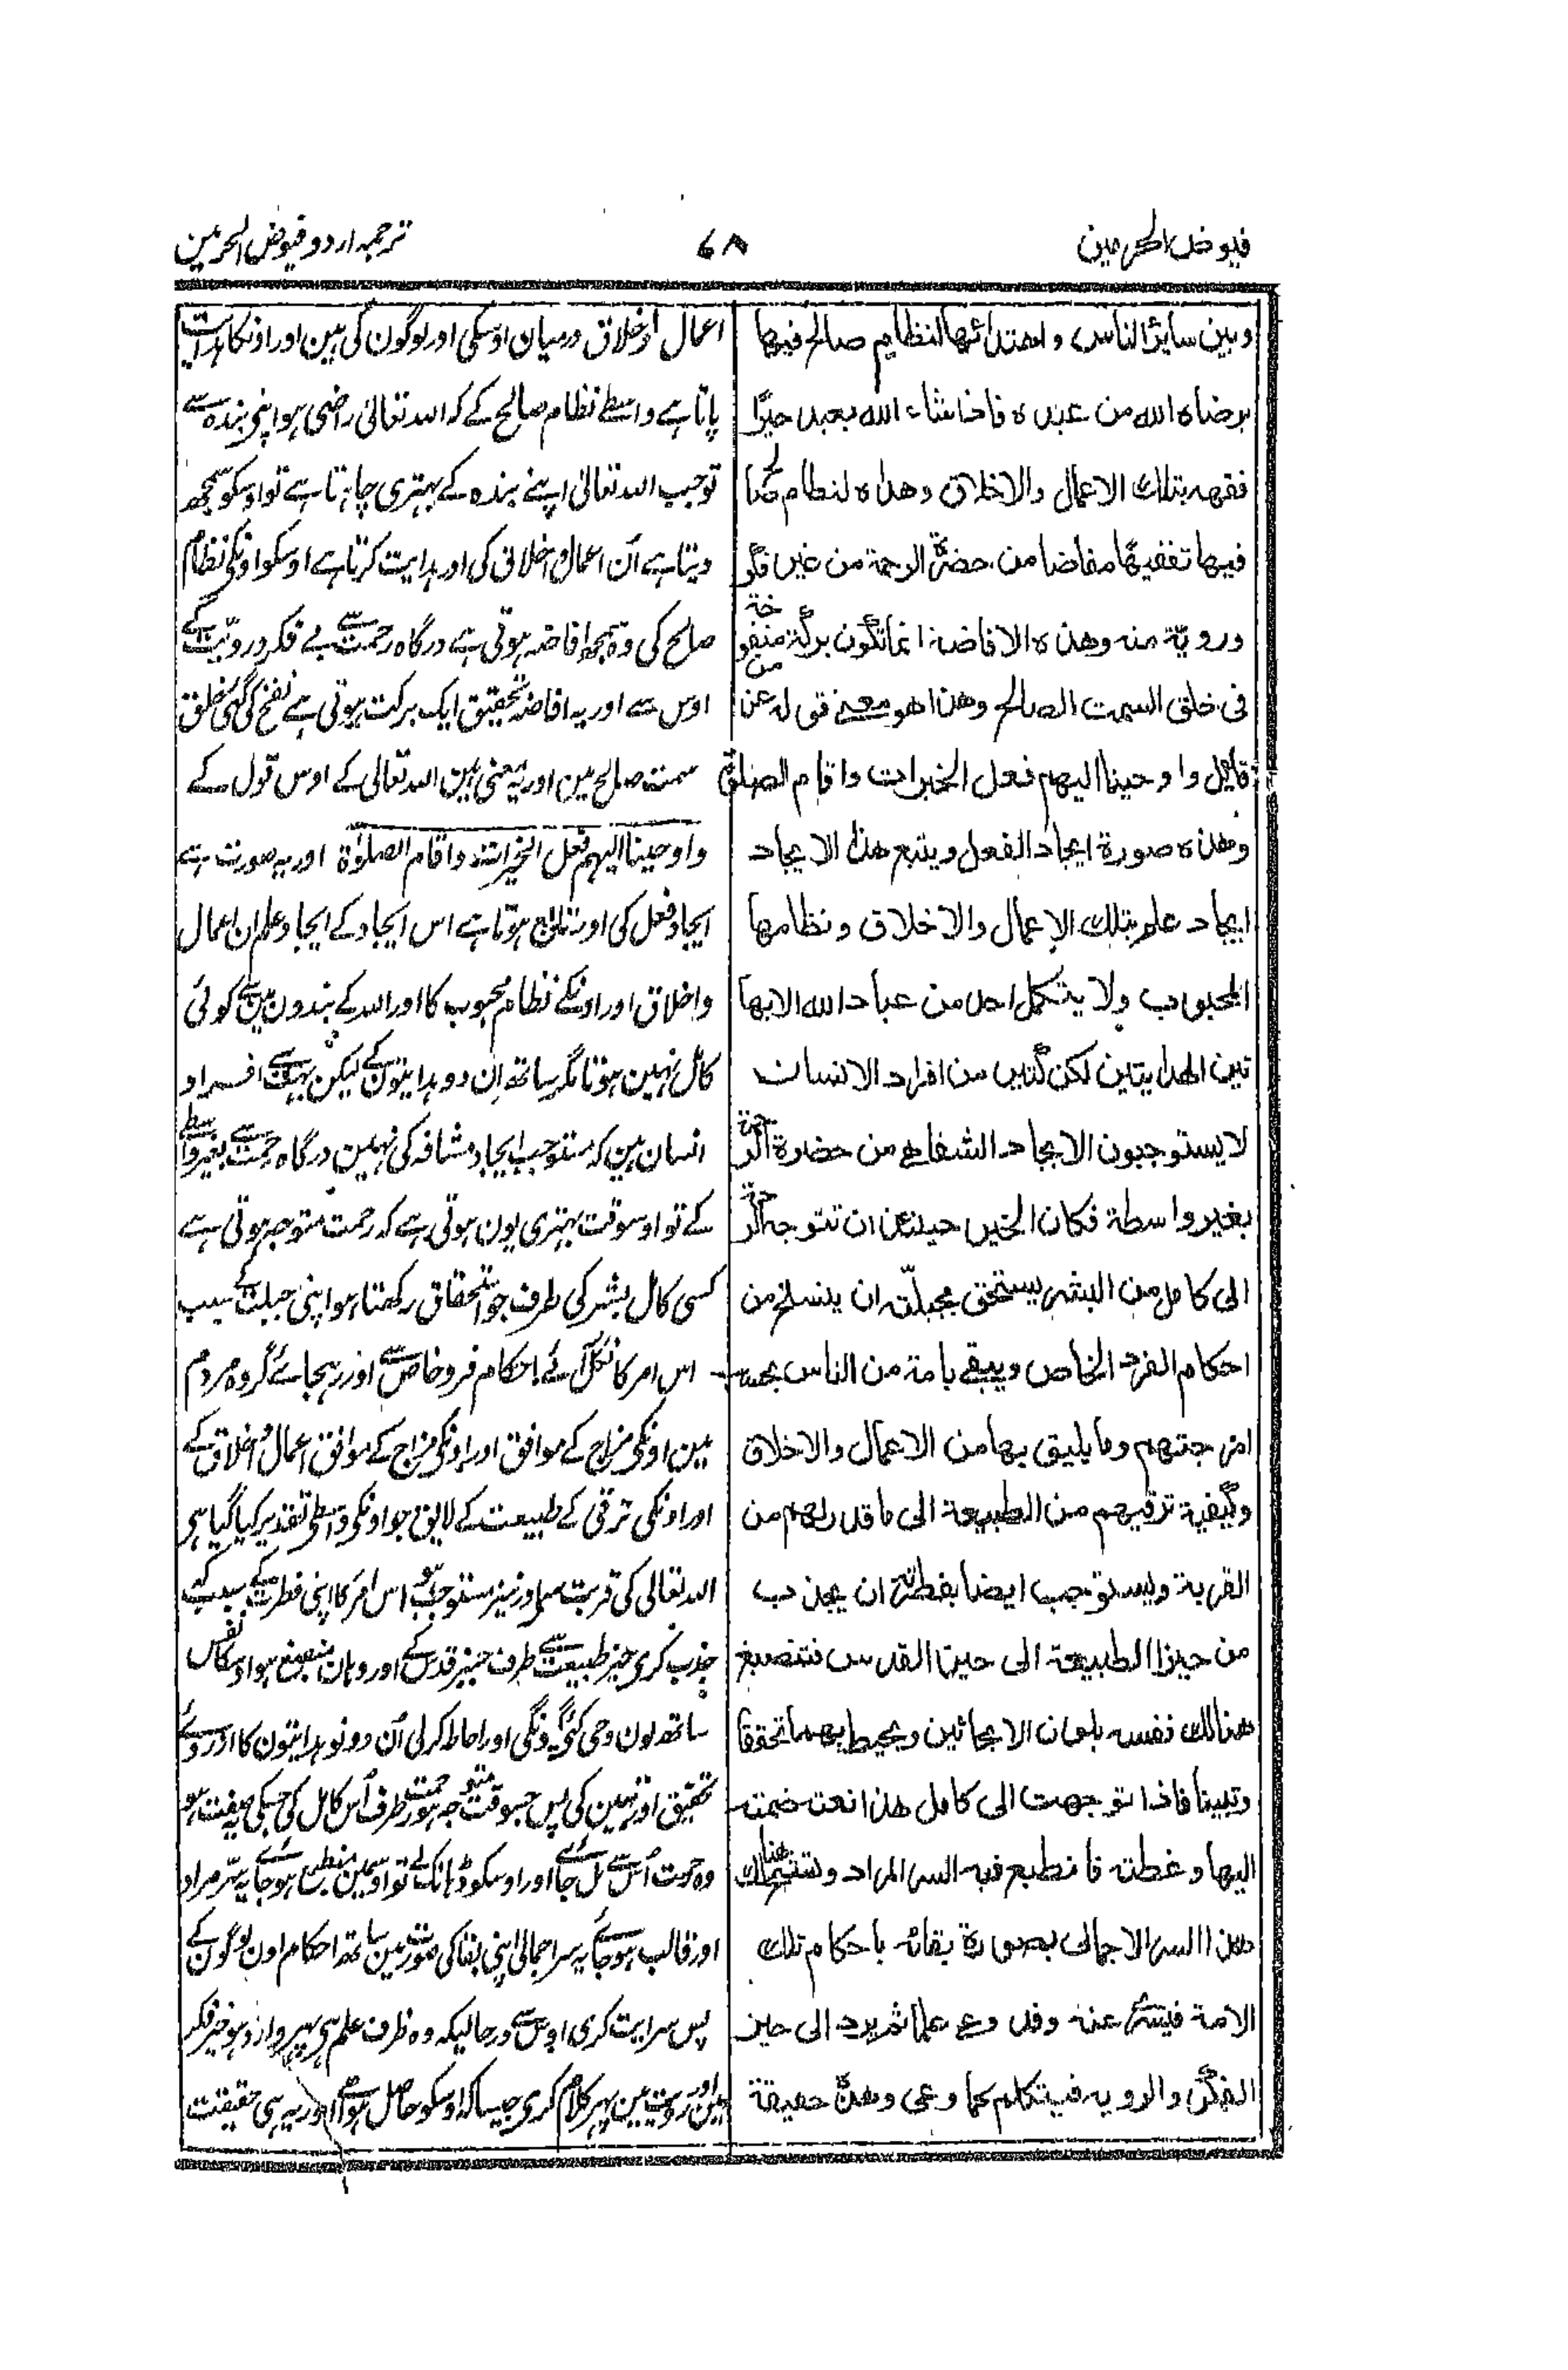 فیوض الحرمین
۶۸
ترجمہ اردو فیوض الحرمین
وبین سائر الناس واهتدائها لنظام صالح فیها
یرضاه الله من عبده فاذا شاء الله بعبد خیرًا
فقهه بتلك الاعمال والاخلاق وهداه لنظام صالح
فیها تفقیهًا مفاضا من حضرة الرحمة من غیر فکر
ورویة منه وهذه الافاضة انما تکون برکة منفوخة
فی خلق السمت الصالح وهذا هو معنے قوله عز من
قائل واوحینا الیهم فعل الخیرات واقام الصلوة
وهذه صورة ایجاد الفعل ویتبع هذا الایجاد
ایجاد علم بتلك الاعمال والاخلاق ونظامها
المحبوب ولا یتکمل احد من عباد الله الا بها
تین الهدایتین لکن کثیر من افراد الانسان
لا یستوجبون الایجاد الشفاهے من حضرة الرحمة
بغیر واسطة فکان الخیر حینئذ ان تتوجه الرحمة
الی کامل من البشر یستحق بجبلته ان ینسلخ من
احکام الفرد الخاص ویبقے بامة من الناس بحسب
امزجتهم وما یلیق بها من الاعمال والاخلاق
وکیفیة ترقیهم من الطبیعة الی ما قدر لهم من
القربة ویستوجب ایضا بفطرته ان یجذب
من حیز الطبیعة الی حیز القدس فتنصبغ
هنالك نفسه بلون الایحائین ویحیط بهما تحققا
وتبینا فاذا توجهت الی کامل هذا نعته ضمته
الیها وغطته فانطبع فیه السر المراد وتشبح هنالك
هذا السر الاجمالی بصورة بقائه باحکام تلك
الامة فیسرے عنه وقد وعے علما ثم یرد الی حیز
الفکر والرویه فیتکلم بما وعی وهذه حقیقة
اعمال واخلاق درمیان اوسکی اور لوگون کی ہین اور اونکا ہدایت
پاتا ہے واسطے نظام صالح کے کہ اللہ تعالیٰ راضی ہو اپنی بندہ سے
توجب اللہ تعالیٰ اپنے بندہ کے بہتری چاہتا ہے تو اوسکو سمجھ
دیتا ہے اُن اعمال و اخلاق کی اور ہدایت کرتا ہے اوسکو اونکی نظام
صالح کی وہ سمجھ افاضہ ہوتی ہے درگاہ رحمت سے بے فکر و رویت کے
اوس سے اور یہ افاضہ تحقیق ایک برکت ہوتی ہے نفخ کی گئی خلق
سمت صالح مین اور یہ معنی ہین اللہ تعالی کے اوس قول کے
واوحینا الیهم فعل الخیرات واقام الصلوٰة اور یہ صورت ہے
ایجاد فعل کی اور تابع ہوتا ہے اس ایجاد کے ایجاد علم ان اعمال
واخلاق اور اونکے نظام محبوب کا اور اللہ کے بندون مین سے کوئی
کامل نہین ہوتا مگر ساتھ اِن دو ہدایتون کے لیکن بہت سے افراد
انسان ہین کہ مستوجب ایجاد مشافہ کی نہین درگاہ رحمت سے بغیر واسطے
کے تو اوسوقت بہتری یون ہوتی ہے کہ رحمت متوجہ ہوتی ہے
کسی کامل بشر کی طرف جو استحقاق رکھتا ہو اپنی جبلت کے سبب
اس امر کا نکل آئے احکام فرد خاص سے اور رہجائے گروہ مردم
مین اونکی مزاج کے موافق اور اونکی مزاج کے موافق اعمال و اخلاق کے
اور اونکی ترقی کے طبیعت کے لایق جو اونکی واسطی تقدیر کیا گیا ہی
اللہ تعالی کی قربت سے اور نیز مستوجب ہو اس امر کا اپنی فطرت کے سبب کہ
جذب کری حیز طبیعت سے طرف حیز قدس کے اور وہان منصبغ ہو اوسکا نفس
ساتھ لون وحی کے اور احاطہ کرلی اُن دونو ہدایتون کا از روئے
تحقیق اور تبیین کی پس جسوقت متوجہ ہو رحمت طرف اُس کامل کی جسکی یہ صفت ہو
وہ رحمت اُس سے مل جائے اور اوسکو ڈہانک لے تو اوسمین منطبع ہو جائے یہ سّر مراد
اور قالب ہو جائے یہ سر اجمالی اپنی بقا کی صورت مین ساتھ احکام اون لوگون کے
پس سرایت کری اوس سے درحالیکہ وہ ظرف علم ہی پہر وارد ہو حیز فکر
اور رویت مین پہر کلام کری جیسا کہ اوسکو حاصل ہوا ہے اور یہ ہی حقیقت